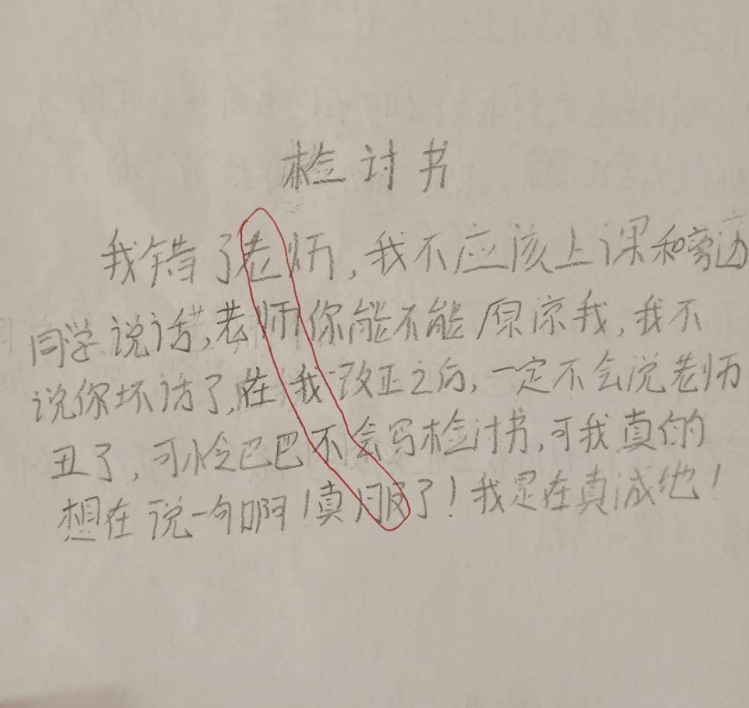 检讨书
我错了老师,我不应该上课和旁边
同学说话,老师你能不能原凉我,我不
说你坏话了,在我改正之后,一定不会说老师
丑了,可怜巴巴不会写检讨书,可我真的
想在说一句啊!真服了!我是在真诚地!